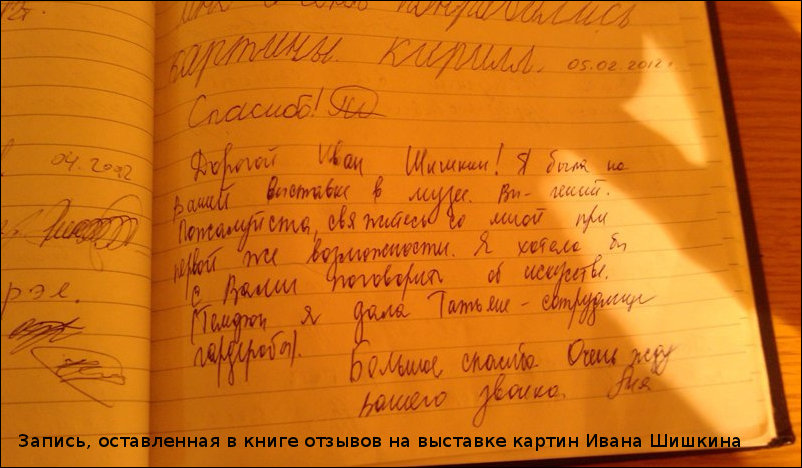 понравились
картины. Кирилл. 05.02.2012г.
Спасибо!
04.2002
Дорогой Иван Шишкин! Я была на
Вашей выставке в музее. Вы - гений.
Пожалуйста, свяжитесь со мной при
первой же возможности. Я хотела бы
с Вами поговорить об искусстве.
(Телефон я дала Татьяне - сотруднице
гардероба).
рэе.
Большое спасибо. Очень жду
вашего звонка. Яна
Запись, оставленная в книге отзывов на выставке картин Ивана Шишкина